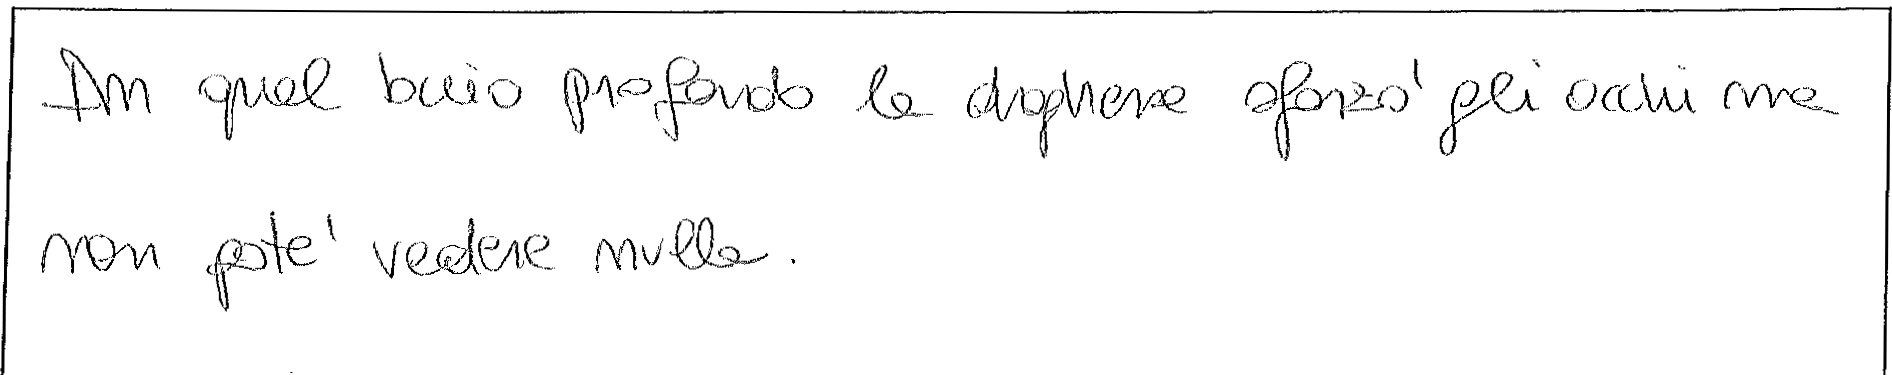 In quel buio profondo la droghiera sforzò gli occhi ma
non poté vedere nulla.